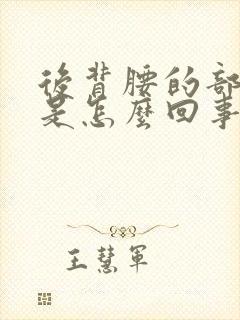 後背腰的部
是怎麼回事
王慧軍